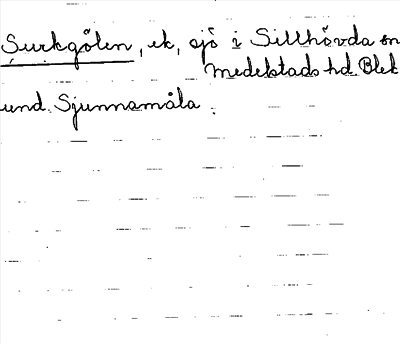 Surkgölen, ek, sjö i Sillhövda sn
Medelstads hd. Blek
und. Sjunnamåla.